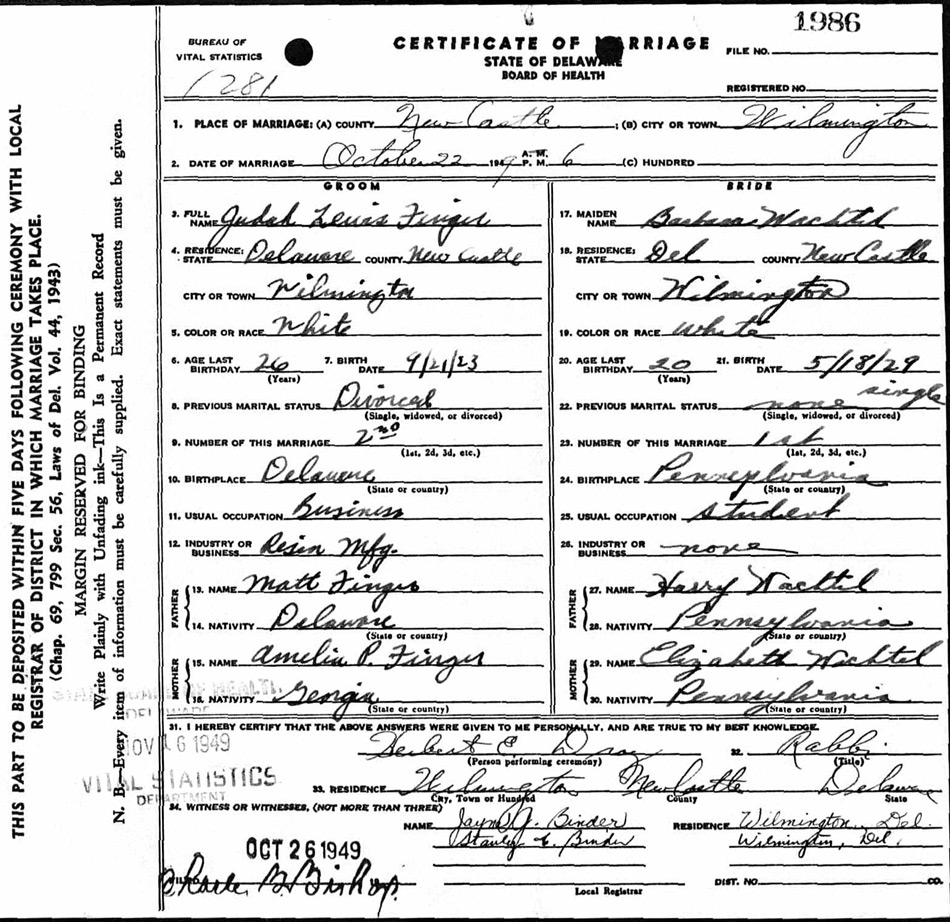 1986
BUREAU OF
VITAL STATISTICS
1281
CERTIFICATE OF MARRIAGE
STATE OF DELAWARE
BOARD OF HEALTH
FILE NO.
REGISTERED NO.
1. PLACE OF MARRIAGE: (A) COUNTY New Castle ; (B) CITY OR TOWN Wilmington
2. DATE OF MARRIAGE October 22 1949 A.M. P.M. 6 (C) HUNDRED
GROOM
3. FULL NAME Judah Lewis Finger
4. RESIDENCE: STATE Delaware COUNTY New Castle
CITY OR TOWN Wilmington
5. COLOR OR RACE White
6. AGE LAST BIRTHDAY 26 (Years) 7. BIRTH DATE 9/21/23
8. PREVIOUS MARITAL STATUS Divorced
(Single, widowed, or divorced)
9. NUMBER OF THIS MARRIAGE 2nd
(1st, 2d, 3d, etc.)
10. BIRTHPLACE Delaware
(State or country)
11. USUAL OCCUPATION Business
12. INDUSTRY OR BUSINESS Resin Mfg.
FATHER
13. NAME Matt Finger
14. NATIVITY Delaware
(State or country)
MOTHER
15. NAME Amelia P. Finger
16. NATIVITY Georgia
(State or country)
BRIDE
17. MAIDEN NAME Barbara Wachtel
18. RESIDENCE: STATE Del COUNTY New Castle
CITY OR TOWN Wilmington
19. COLOR OR RACE white
20. AGE LAST BIRTHDAY 20 (Years) 21. BIRTH DATE 5/18/29
22. PREVIOUS MARITAL STATUS none single
(Single, widowed, or divorced)
23. NUMBER OF THIS MARRIAGE 1st
(1st, 2d, 3d, etc.)
24. BIRTHPLACE Pennsylvania
(State or country)
25. USUAL OCCUPATION student
26. INDUSTRY OR BUSINESS none
FATHER
27. NAME Harry Wachtel
28. NATIVITY Pennsylvania
(State or country)
MOTHER
29. NAME Elizabeth Wachtel
30. NATIVITY Pennsylvania
(State or country)
31. I HEREBY CERTIFY THAT THE ABOVE ANSWERS WERE GIVEN TO ME PERSONALLY, AND ARE TRUE TO MY BEST KNOWLEDGE.
Herbert E. 32. Rabbi
(Person performing ceremony) (Title)
33. RESIDENCE Wilmington New Castle Delaware
City, Town or Hundred County State
34. WITNESS OR WITNESSES, (NOT MORE THAN THREE)
NAME Jayne J. Binder RESIDENCE Wilmington, Del.
Stanley E. Binder Wilmington, Del.
OCT 26 1949
B. Bishop.
Local Registrar
DIST. NO. CO.
THIS PART TO BE DEPOSITED WITHIN FIVE DAYS FOLLOWING CEREMONY WITH LOCAL
REGISTRAR OF DISTRICT IN WHICH MARRIAGE TAKES PLACE.
(Chap. 69, 799 Sec. 56, Laws of Del. Vol. 44, 1943)
MARGIN RESERVED FOR BINDING
Write Plainly with Unfading ink—This Is a Permanent Record
N. B.—Every item of information must be carefully supplied. Exact statements must be given.
NOV 16 1949
VITAL STATISTICS
DEPARTMENT